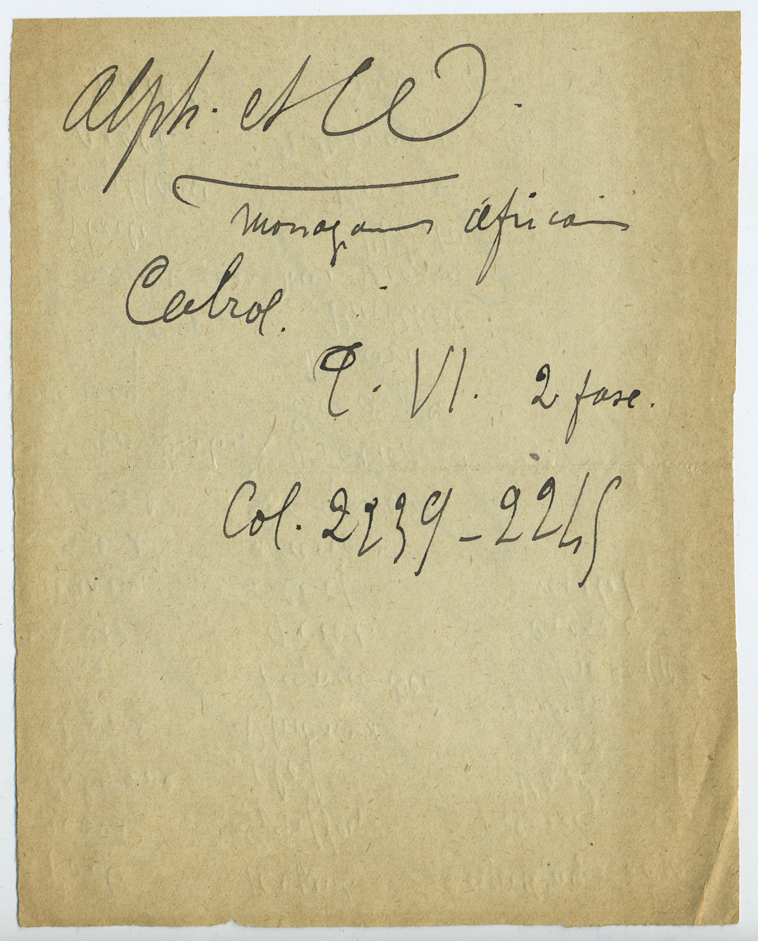 Alph. et
africain
Cabrol.
T. VI. 2 fasc.
Col. 2239-2245